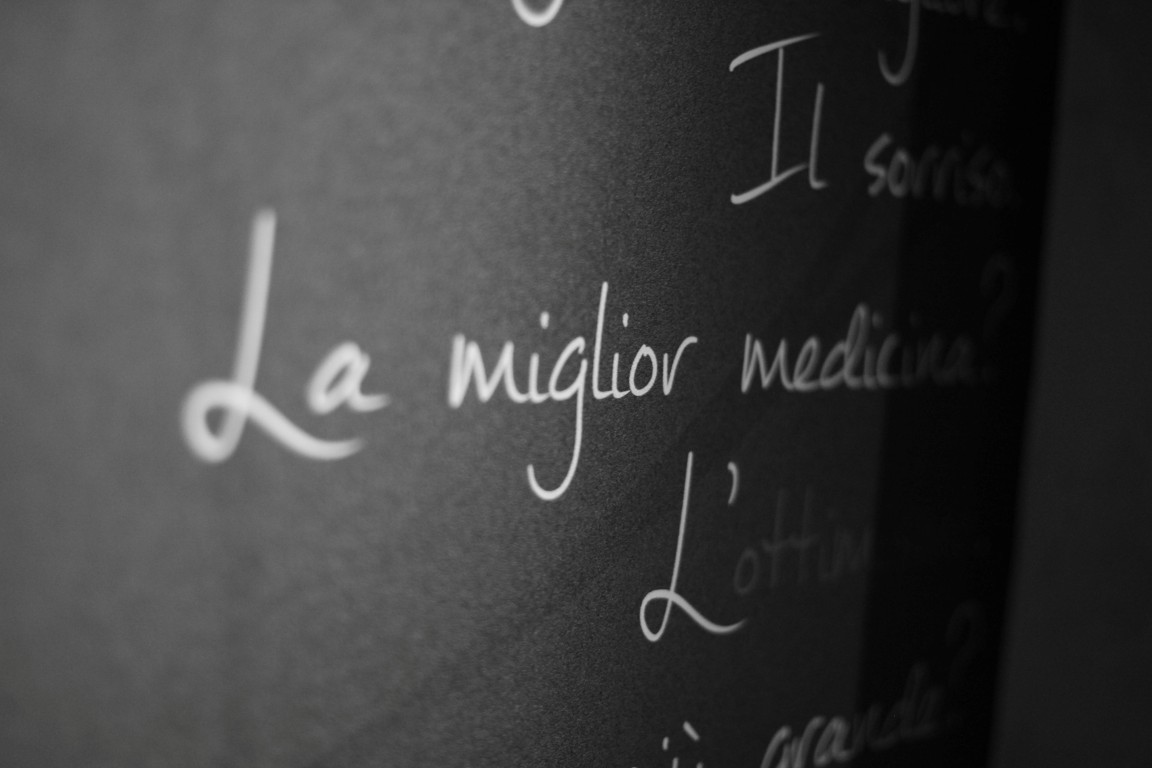 Il sorriso.
La miglior medicina?
L'ottim
più grande?